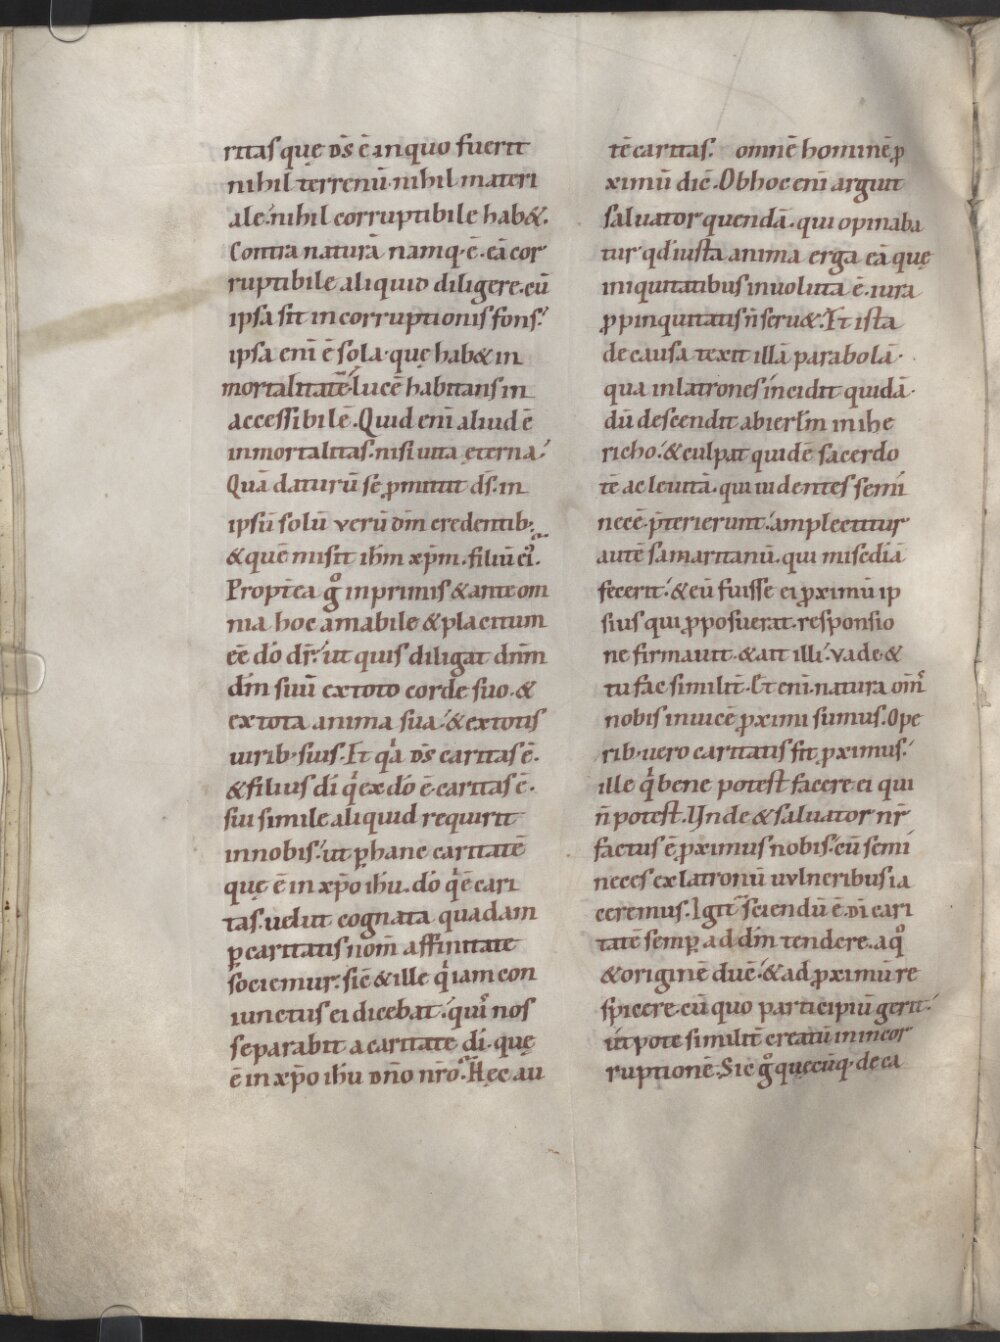 ritas quę d̄s ē in quo fuerit
nihil terrenū. nihil materi
ale. nihil corruptibile hab&.
Contra naturā namq; ē. eā cor
ruptibile aliquid diligere. cū
ipsa sit incorruptionis fons.
ipsa eni ē sola. quę hab& in
mortalitatē. lucē habitans in
accessibilē. Quid eni aliud ē
inmortalitas. nisi uita ęterna.
Quā daturū se ꝓmittit d̄s. in
ipsū solū verū dm̄ credentib;
& quē misit ih̄m xp̄m. filiū ei᷒.
Propt̄ea gͦ in primis & ante om
nia hoc amabile & placitum
eē dō dr̄. ut quis diligat dnm̄
dm̄ suū ex toto corde suo. &
ex tota anima sua. & ex totis
uirib; suis. Et qa d̄s caritas ē.
& filius di qi ex dō ē caritas ē.
sui simile aliquid requirit
in nobis. ut ꝑ hanc caritatē
quę ē in xp̄o ih̄u. dō qi ē cari
tas. uelut cognata quadam
ꝑ caritatis nom̄ affinitate
sociemur. sic & ille qi iam con
iunctus ei dicebat. qui nos
separabit a caritate di. quę
ē in xp̄o ih̄u dn̄o nr̄o. Hęc au
tē caritas. omnē hominē ꝓ
ximū dic̄. Ob hoc eni arguit
saluator quendā. qui opinaba
tur qd iusta anima erga eā quę
iniquitatibus inuoluta ē. iura
ꝓpinquitatis n̄ seru&. Et ista
de causa texit illā parabolā.
qua in latrones incidit quidā.
dū descendit ab ierl̄m in ihe
richo. & culpat quidē sacerdo
tē ac leuitā. qui uidentes semi
necē p̄terierunt. amplectitur
autē samaritanū. qui misc̄diā
fecerit. & eū fuisse ei ꝓximū ip
sius qui ꝓposuerat. responsio
ne firmauit. & ait illi. vade &
tu fac similit̄. Et eni natura om̄s
nobis inuicē ꝓximi sumus. Ope
rib; uero caritatis fit ꝓximus.
ille qi bene potest facere ei qui
n̄ potest. Unde & saluator nr̄
factus ē ꝓximus nobis. cū semi
neces ex latronū uvlneribus ia
ceremus. Igit̄ sciendū ē. di cari
tatē semꝑ ad dm̄ tendere. a qͦ
& originē duc̄. & ad ꝓximū re
spicere. cū quo participiū gerit.
ut pote similit̄ creatū in incor
ruptionē. Sic gͦ quęcūq; de ca